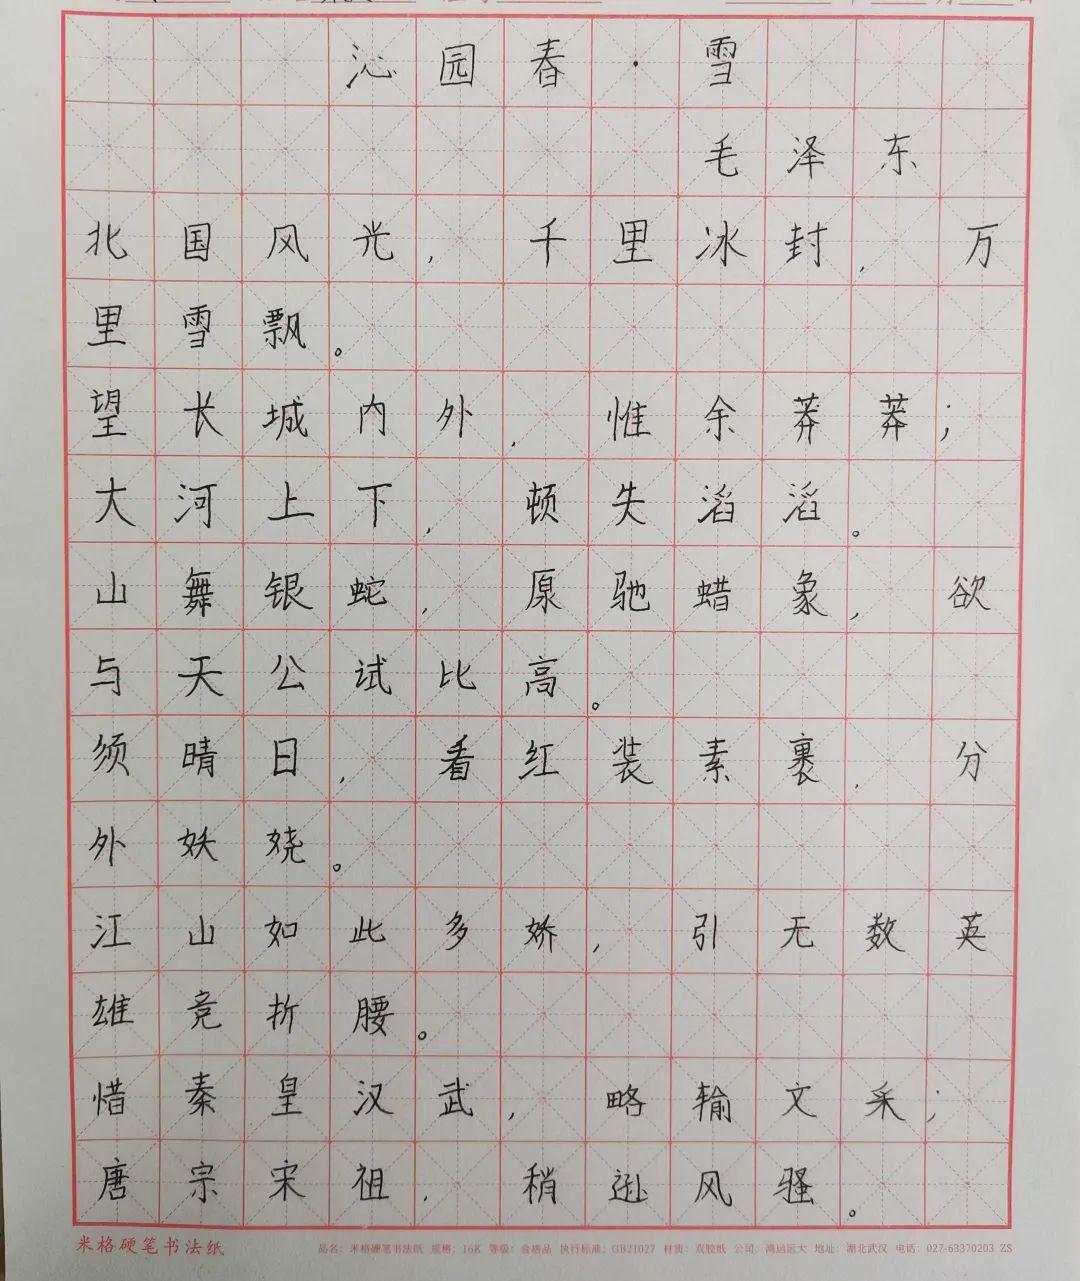 沁园春·雪
毛泽东
北国风光，千里冰封，万
里雪飘。
望长城内外，惟余莽莽；
大河上下，顿失滔滔。
山舞银蛇，原驰蜡象，欲
与天公试比高。
须晴日，看红装素裹，分
外妖娆。
江山如此多娇，引无数英
雄竞折腰。
惜秦皇汉武，略输文采；
唐宗宋祖，稍逊风骚。
米格硬笔书法纸 品名：米格硬笔书法纸 规格：16K 等级：合格品 执行标准：GB21027 材质：双胶纸 公司：鸿运远大 地址：湖北武汉 电话：027-63370203 ZS